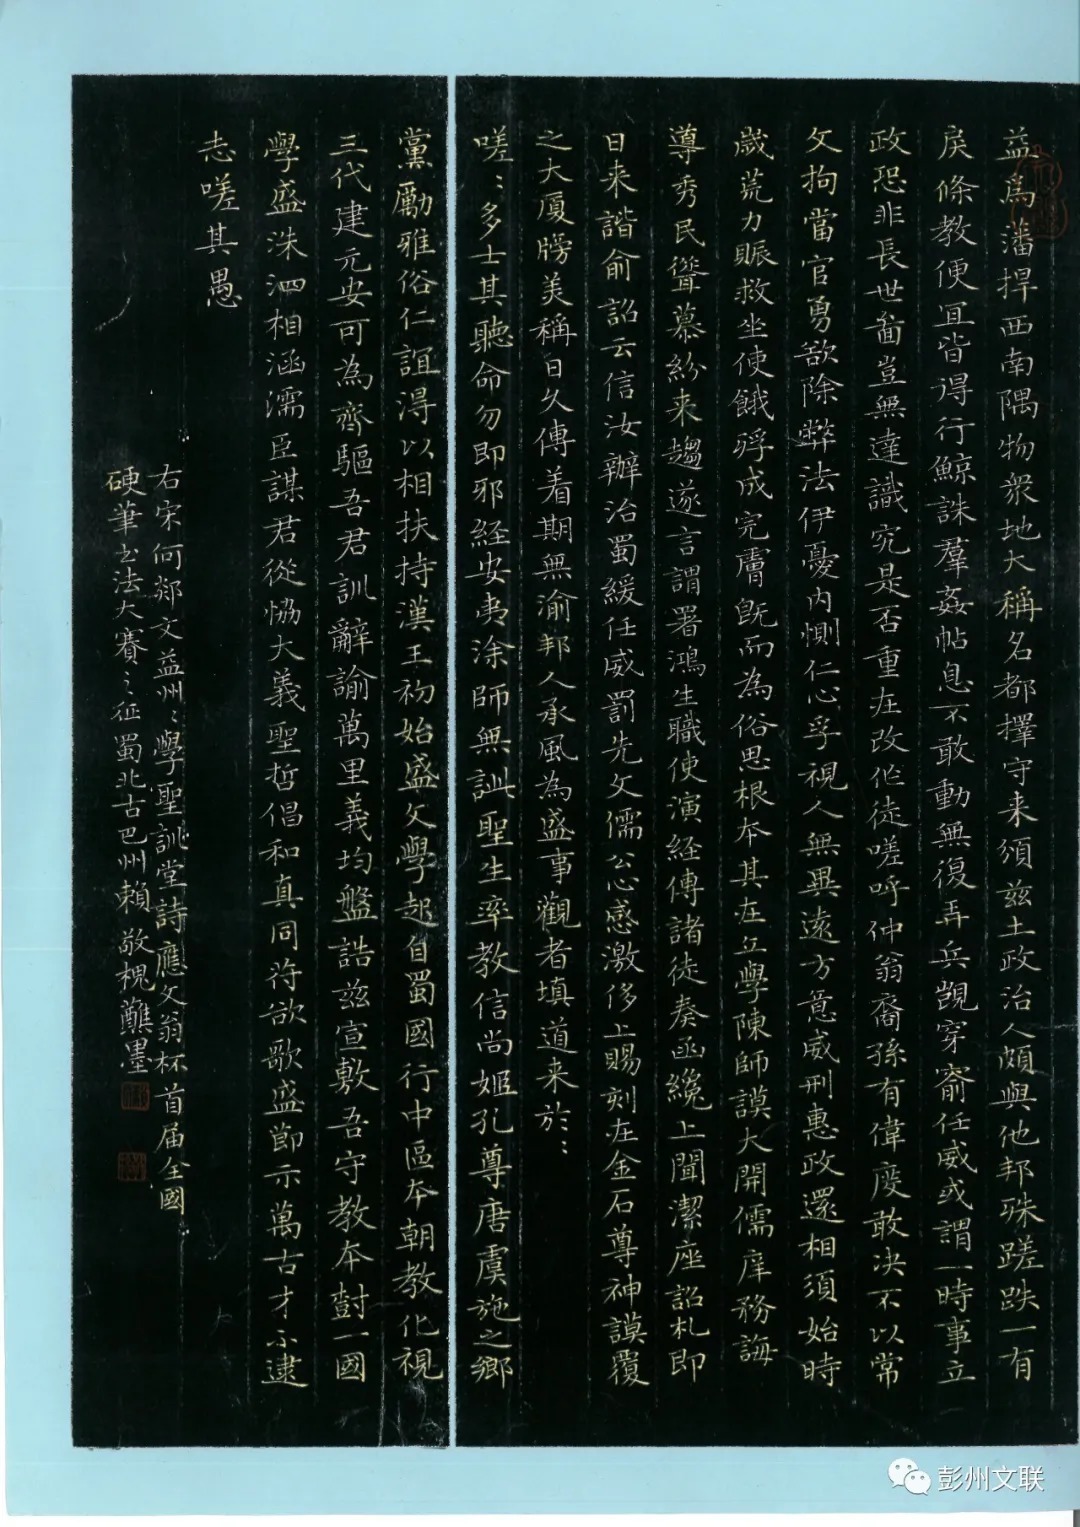 益為藩捍西南隅物衆地大稱名都擇守来須兹土政治人頗與他邦殊蹉跌一有
戾條教便宜皆得行鯨誅羣姦帖息不敢動無復弄兵覬穿窬任威或謂一時事立
政恐非長世啚豈無達識究是否重在改作徒嗟呼仲翁裔孫有偉度敢决不以常
文拘當官勇欲除弊法伊憂内惻仁心孚視人無異遠方意威刑惠政還相須始時
歲荒力賑救坐使餓殍成完膚既而為俗思根本其在立學陳師謨大開儒庠務誨
導秀民聳慕紛来趨遂言謂署鴻生職使演經傳諸徒奏函纔上聞潔座詔札即
日来諧俞詔云信汝辦治蜀緩任威罰先文儒公心感激侈上賜刻在金石尊神謨覆
之大厦牓美稱日久傳着期無渝邦人承風為盛事觀者填道来於〻
嗟〻多士其聽命勿即邪經安夷涂師無訓聖生率教信尚姬孔尊唐虞施之鄉
黨勵雅俗仁誼得以相扶持漢王初始盛文學起自蜀國行中區本朝教化視
三代建元安可為齊驅吾君訓辭諭萬里義均盤誥兹宣敷吾守教本對一國
學盛洙泗相涵濡臣謀君從恊大義聖哲倡和真同符欲歌盛節示萬古才不逮
志嗟其愚
右宋何郯文益州〻學聖訓堂詩應文翁杯首届全國
硬筆书法大賽〻征蜀北古巴州賴敬槐蘸墨
彭州文联